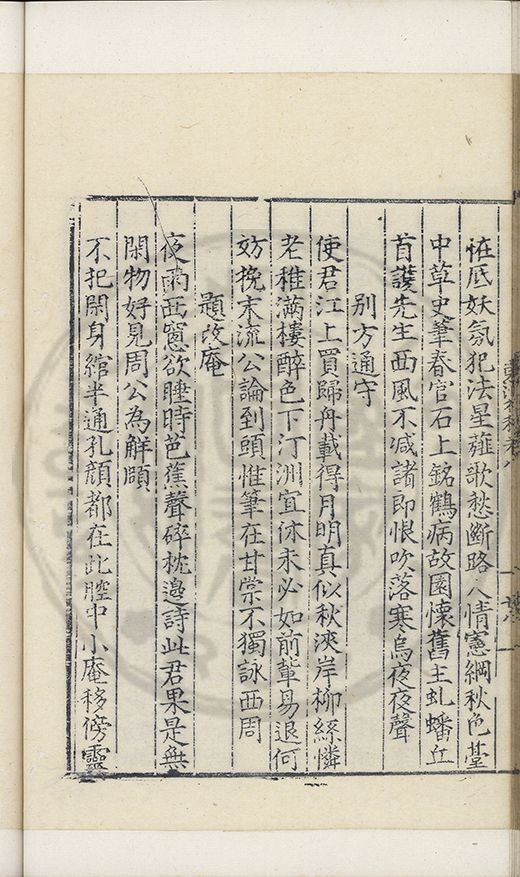 怪底妖氛犯法星薤歌愁斷路人情憲綱秋色薹
中草史筆春官石上銘鶴病故園懷舊主虬蟠丘
首護先生西風不减諸郎恨吹落寒烏夜夜聲
别方通守
使君江上買歸舟載得月明真似秋浹岸柳絲憐
老稚滿樓醉色下汀洲宜休未必如前輩易退何
妨挽末流公論到頭惟筆在甘棠不獨詠西周
題改庵
夜雨西窓欲睡時芭蕉聲碎枕邊詩此君果是無
閑物好見周公為解頤
不把閑身綰半通孔顔都在此腔中小庵移傍靈